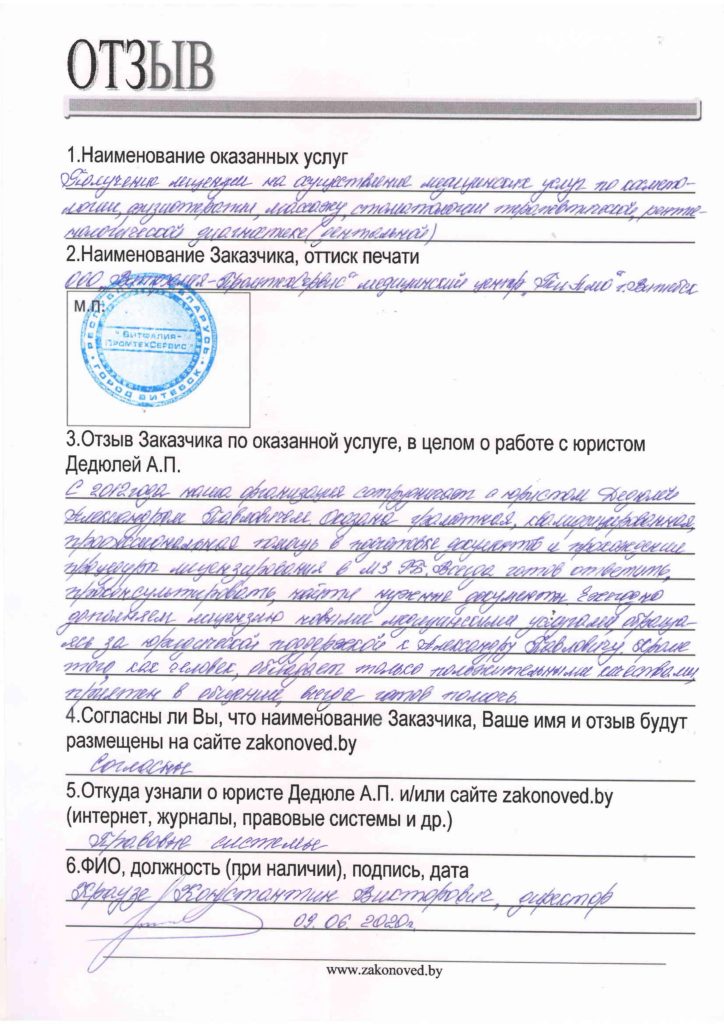 ОТЗЫВ
1.Наименование оказанных услуг
Получение лицензии на осуществление медицинских услуг по космето-
логии, физиотерапии, массажу, стоматологии терапевтической, рентге-
нологической диагностике (дентальной)
2.Наименование Заказчика, оттиск печати
ООО "Витфалия-ПромтехСервис" медицинский центр г. Витебск
М.П.
РЕСПУБЛИКА БЕЛАРУСЬ
"ВИТФАЛИЯ-
ПРОМТЕХСЕРВИС"
ГОРОД ВИТЕБСК
3.Отзыв Заказчика по оказанной услуге, в целом о работе с юристом
Дедюлей А.П.
С 2012 года наша организация сотрудничает с юристом Дедюлей
Александром Павловичем. Оказана грамотная, квалифицированная,
профессиональная помощь в подготовке документов и прохождение
процедуры лицензирования в МЗ РБ. Всегда готов ответить,
проконсультировать, найти нужные документы. Ежегодно
дополняем лицензию новыми медицинскими услугами, обраща-
ясь за юридической поддержкой к Александру Павловичу. Кроме
того, как человек, обладает только положительными качествами,
приятен в общении, всегда готов помочь.
4.Согласны ли Вы, что наименование Заказчика, Ваше имя и отзыв будут
размещены на сайте zakonoved.by
Согласны
5.Откуда узнали о юристе Дедюле А.П. и/или сайте zakonoved.by
(интернет, журналы, правовые системы и др.)
Правовые системы
6.ФИО, должность (при наличии), подпись, дата
Краузе Константин Викторович, директор
09.06.2020г.
www.zakonoved.by